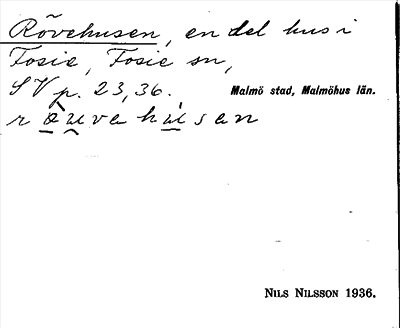 Rövehusen, en del hus i
Fosie, Fosie sn,
SV p. 23, 36. Malmö stad, Malmöhus län.
r ö u v e h u s e n
NILS NILSSON 1936.